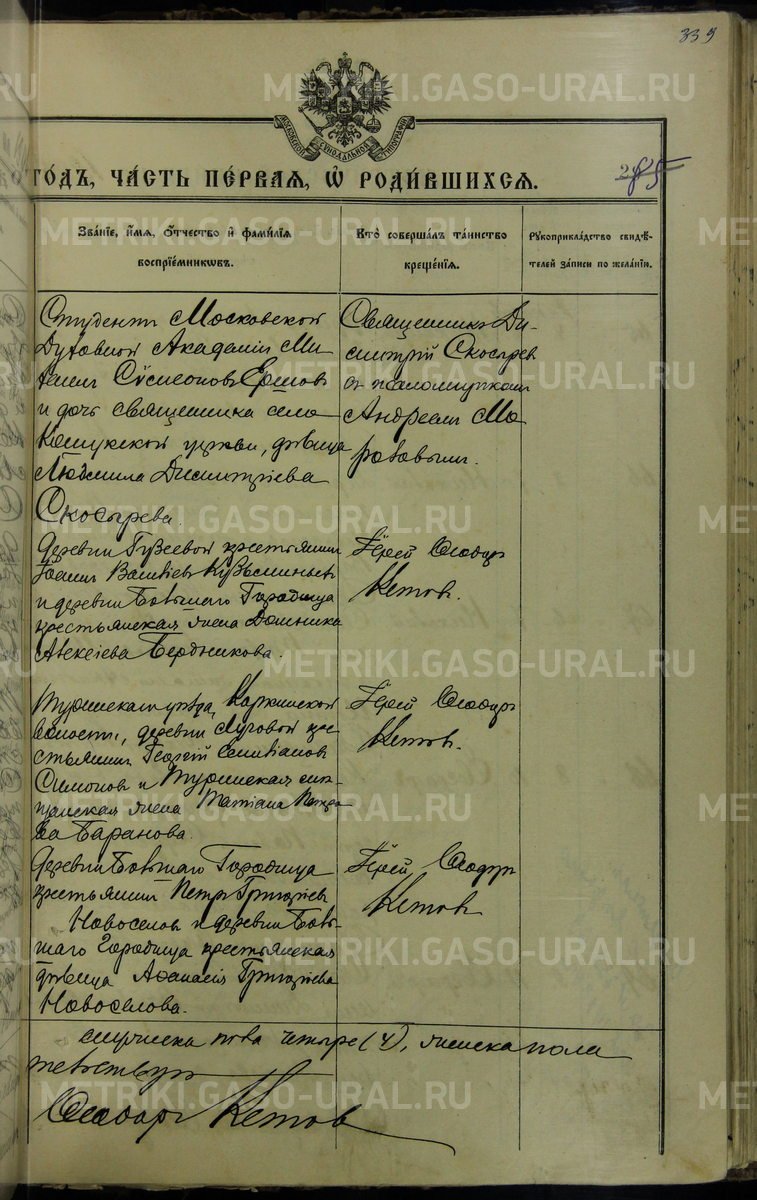 339
МОСКОВСКОЙ СѴНОДАЛЬНОЙ ТИПОГРАФІИ
ГОДЪ, ЧАСТЬ ПЕРВАЯ, Ѡ РОДИВШИХСЯ.
285
Званіе, имя, отчество и фамилія
воспріемниковъ.
Кто совершалъ таинство
крещенія.
Рукоприкладство свидѣ-
телей записи по желанію.
Студентъ Московской
Духовной Академіи Ми-
хаилъ Сѵмеоновъ Ершовъ
и дочь священника села
Кошукской церкви, дѣвица
Людмила Димитріева
Скосырева.
Священникъ Ди-
митрій Скосыревъ
съ псаломщикомъ
Андреемъ Мо-
ровымъ.
Деревни Гузеевой крестьянинъ
Іоаннъ Васильевъ Кузьминыхъ
и деревни Большаго Городища
крестьянская жена Домника
Алексіева Бердникова.
Іерей Ѳеодоръ
Кетовъ.
Туринскаго уѣзда, Коркинской
волости, деревни Луговой кре-
стьянинъ Георгій Селиванов
Симоновъ и Туринская мѣ-
щанская жена Татіана Петро-
ва Баранова.
Іерей Ѳеодоръ
Кетовъ.
Деревни Большаго Городища
крестьянинъ Петръ Григоріев
Новоселовъ и деревни Боль-
шаго Городища крестьянская
дѣвица Аѳанасія Григоріева
Новоселова.
Іерей Ѳеодоръ
Кетовъ
мужеска пола четыре (4), женска пола
Ѳеодоръ Кетовъ
METRIKI.GASO-URAL.RU